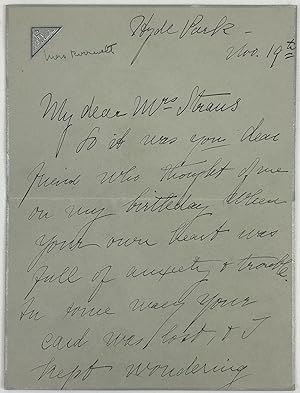 Hyde Park -
Nov. 19th
Mrs Roosevelt
My dear Mrs Straus
So it was you dear
friend who thought of me
on my birthday when
your own heart was
full of anxiety & trouble.
In some way your
card was lost & I
kept wondering